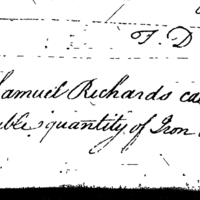 F. D
Samuel Richards ca
uble quantity of Iron